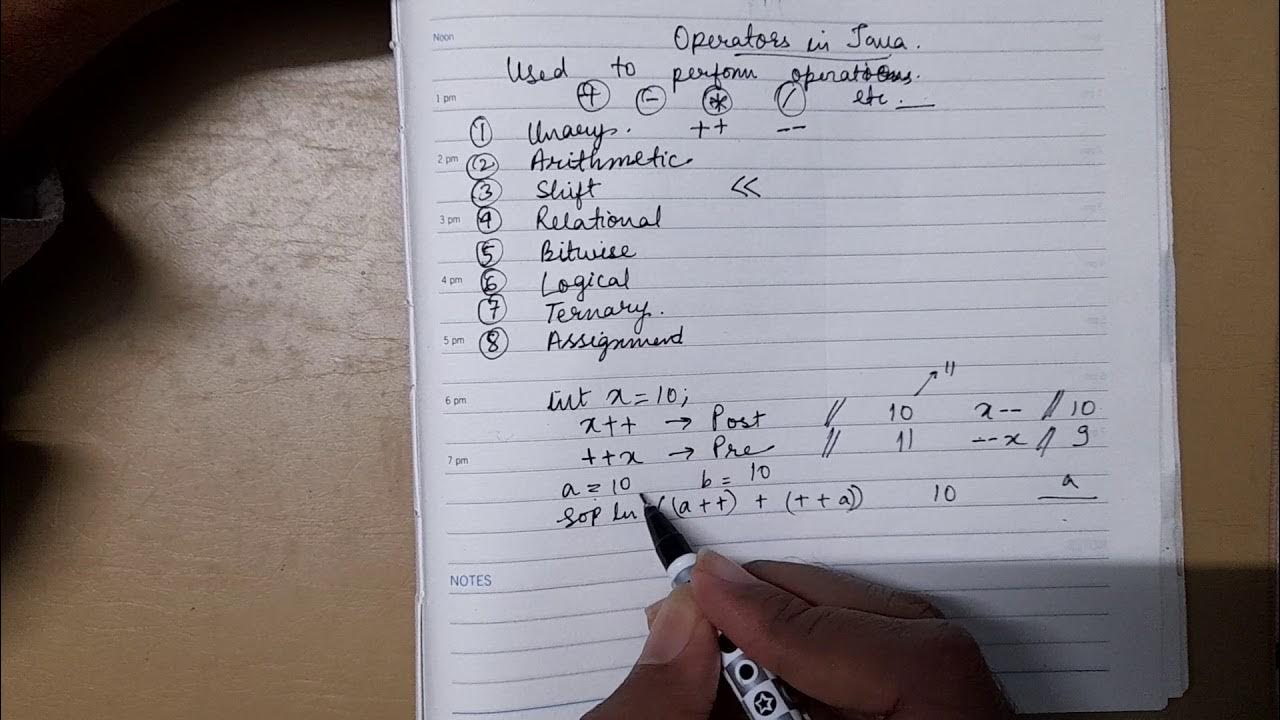 Noon
Operators in Java.
Used to perform operations.
1 pm + - * / etc.
① Unary. ++ --
2 pm ② Arithmetic
③ Shift <<
3 pm ④ Relational
⑤ Bitwise
4 pm ⑥ Logical
⑦ Ternary.
5 pm ⑧ Assignment
11
6 pm int x = 10;
x++ → Post // 10 x-- // 10
7 pm ++x → Pre // 11 --x // 9
a = 10 b = 10 a
Sop ln ((a++) + (++a)) 10
NOTES